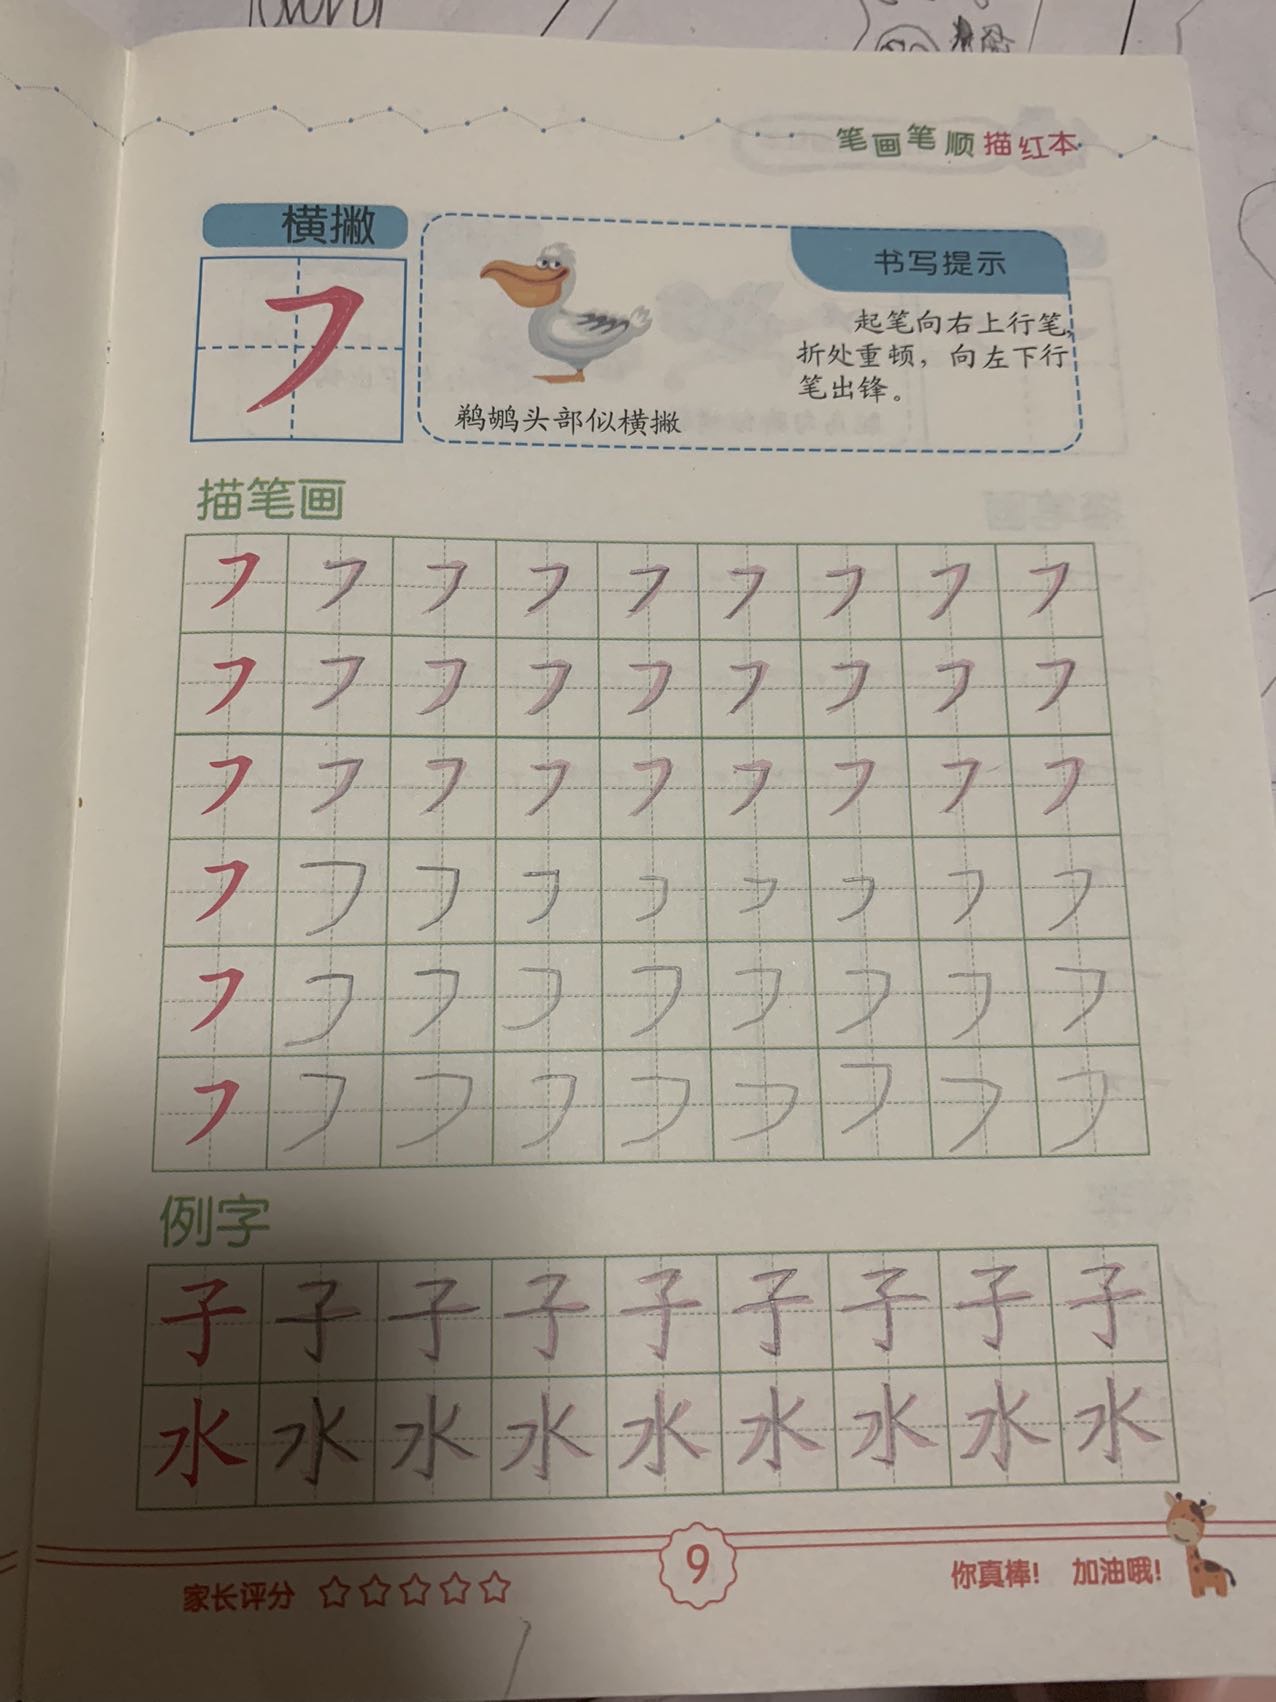 笔画笔顺描红本
横撇
书写提示
㇇
起笔向右上行笔，
折处重顿，向左下行
笔出锋。
鹈鹕头部似横撇
描笔画
㇇㇇㇇㇇㇇㇇㇇㇇㇇
㇇㇇㇇㇇㇇㇇㇇㇇㇇
㇇㇇㇇㇇㇇㇇㇇㇇㇇
㇇㇇㇇㇇㇇㇇㇇㇇㇇
㇇㇇㇇㇇㇇㇇㇇㇇㇇
㇇㇇㇇㇇㇇㇇㇇㇇㇇
例字
子子子子子子子子子
水水水水水水水水水
家长评分 ☆☆☆☆☆
9
你真棒！ 加油哦！